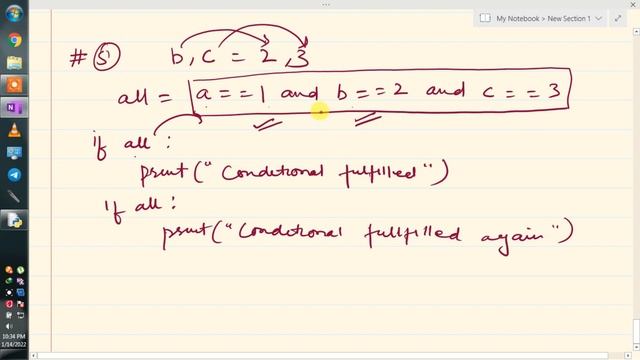 My Notebook > New Section 1
# 5 b, c = 2, 3
all = a == 1 and b == 2 and c == 3
if all :
print("Conditional fulfilled")
if all :
print("Conditional fullfilled again")
10:34 PM
1/14/2022